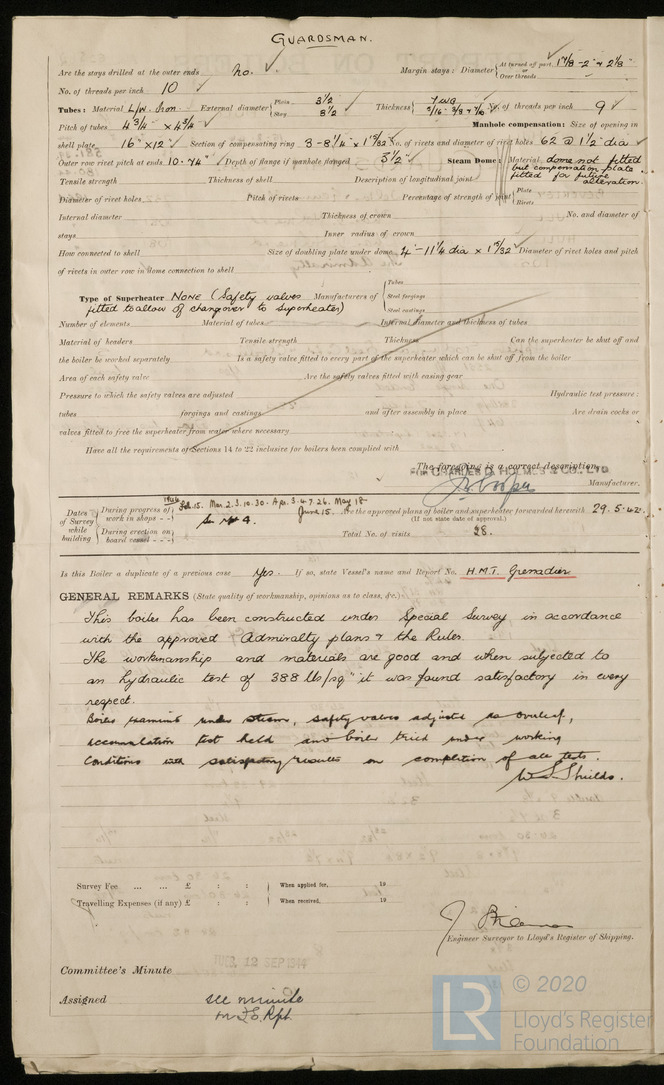 GUARDSMAN.
Are the stays drilled at the outer ends no. Margin stays: Diameter { At turned off part, 1 7/8 - 2" & 2 1/8" or Over threads
No. of threads per inch 10
Tubes: Material L/W. Iron External diameter { Plain 3 1/2 Stay 3 1/2 Thickness { 7 WG 5/16 - 3/8 & 7/16 No. of threads per inch 9
Pitch of tubes 4 3/4" x 4 3/4 Manhole compensation: Size of opening in
shell plate 16" x 12" Section of compensating ring 3-8 1/4" x 1 15/32 No. of rivets and diameter of rivet holes 62 @ 1 1/2" dia
Outer row rivet pitch at ends 10.44" Depth of flange if manhole flanged 3 1/2" Steam Dome: Material dome not fitted but compensation plate fitted for future alteration.
Tensile strength Thickness of shell Description of longitudinal joint
Diameter of rivet holes Pitch of rivets Percentage of strength of joint { Plate Rivets
Internal diameter Thickness of crown No. and diameter of
stays Inner radius of crown
How connected to shell Size of doubling plate under dome 4'-11 1/4 dia x 1 15/32" Diameter of rivet holes and pitch
of rivets in outer row in dome connection to shell
Type of Superheater NONE (Safety valves fitted to allow of changeover to Superheater) Manufacturers of { Tubes Steel forgings Steel castings
Number of elements Material of tubes Internal diameter and thickness of tubes
Material of headers Tensile strength Thickness Can the superheater be shut off and
the boiler be worked separately Is a safety valve fitted to every part of the superheater which can be shut off from the boiler
Area of each safety valve Are the safety valves fitted with easing gear
Pressure to which the safety valves are adjusted Hydraulic test pressure:
tubes forgings and castings and after assembly in place Are drain cocks or
valves fitted to free the superheater from water where necessary
Have all the requirements of Sections 14 to 22 inclusive for boilers been complied with
The foregoing is a correct description,
FOR CHARLES D. HOLMES & CO. LTD
Manufacturer.
Dates of Survey while building { During progress of work in shops - - Feb. 15. Mar. 2. 3. 10. 30. Apr. 3. 4. 7. 26. May 18 June 15. Are the approved plans of boiler and superheater forwarded herewith 29.5.42.
(If not state date of approval.)
During erection on board vessel - - - See Rpt 4. Total No. of visits 28.
Is this Boiler a duplicate of a previous case Yes. If so, state Vessel's name and Report No. H.M.T. Grenadier
GENERAL REMARKS (State quality of workmanship, opinions as to class, &c.)
This boiler has been constructed under Special Survey in accordance
with the approved Admiralty plans & the Rules.
The workmanship and materials are good and when subjected to
an hydraulic test of 388 lbs/sq" it was found satisfactory in every
respect.
Boiler examined under steam, safety valves adjusted as overleaf,
accumulation test held and boiler tried under working
conditions with satisfactory results on completion of all tests.
W S Shields.
Survey Fee ... ... £ : : When applied for, 19
Travelling Expenses (if any) £ : : When received, 19
Engineer Surveyor to Lloyd's Register of Shipping.
Committee's Minute 12 SEP 1944
Assigned see minute
on F.E. Rpt.
© 2020
LR
Lloyd's Register
Foundation